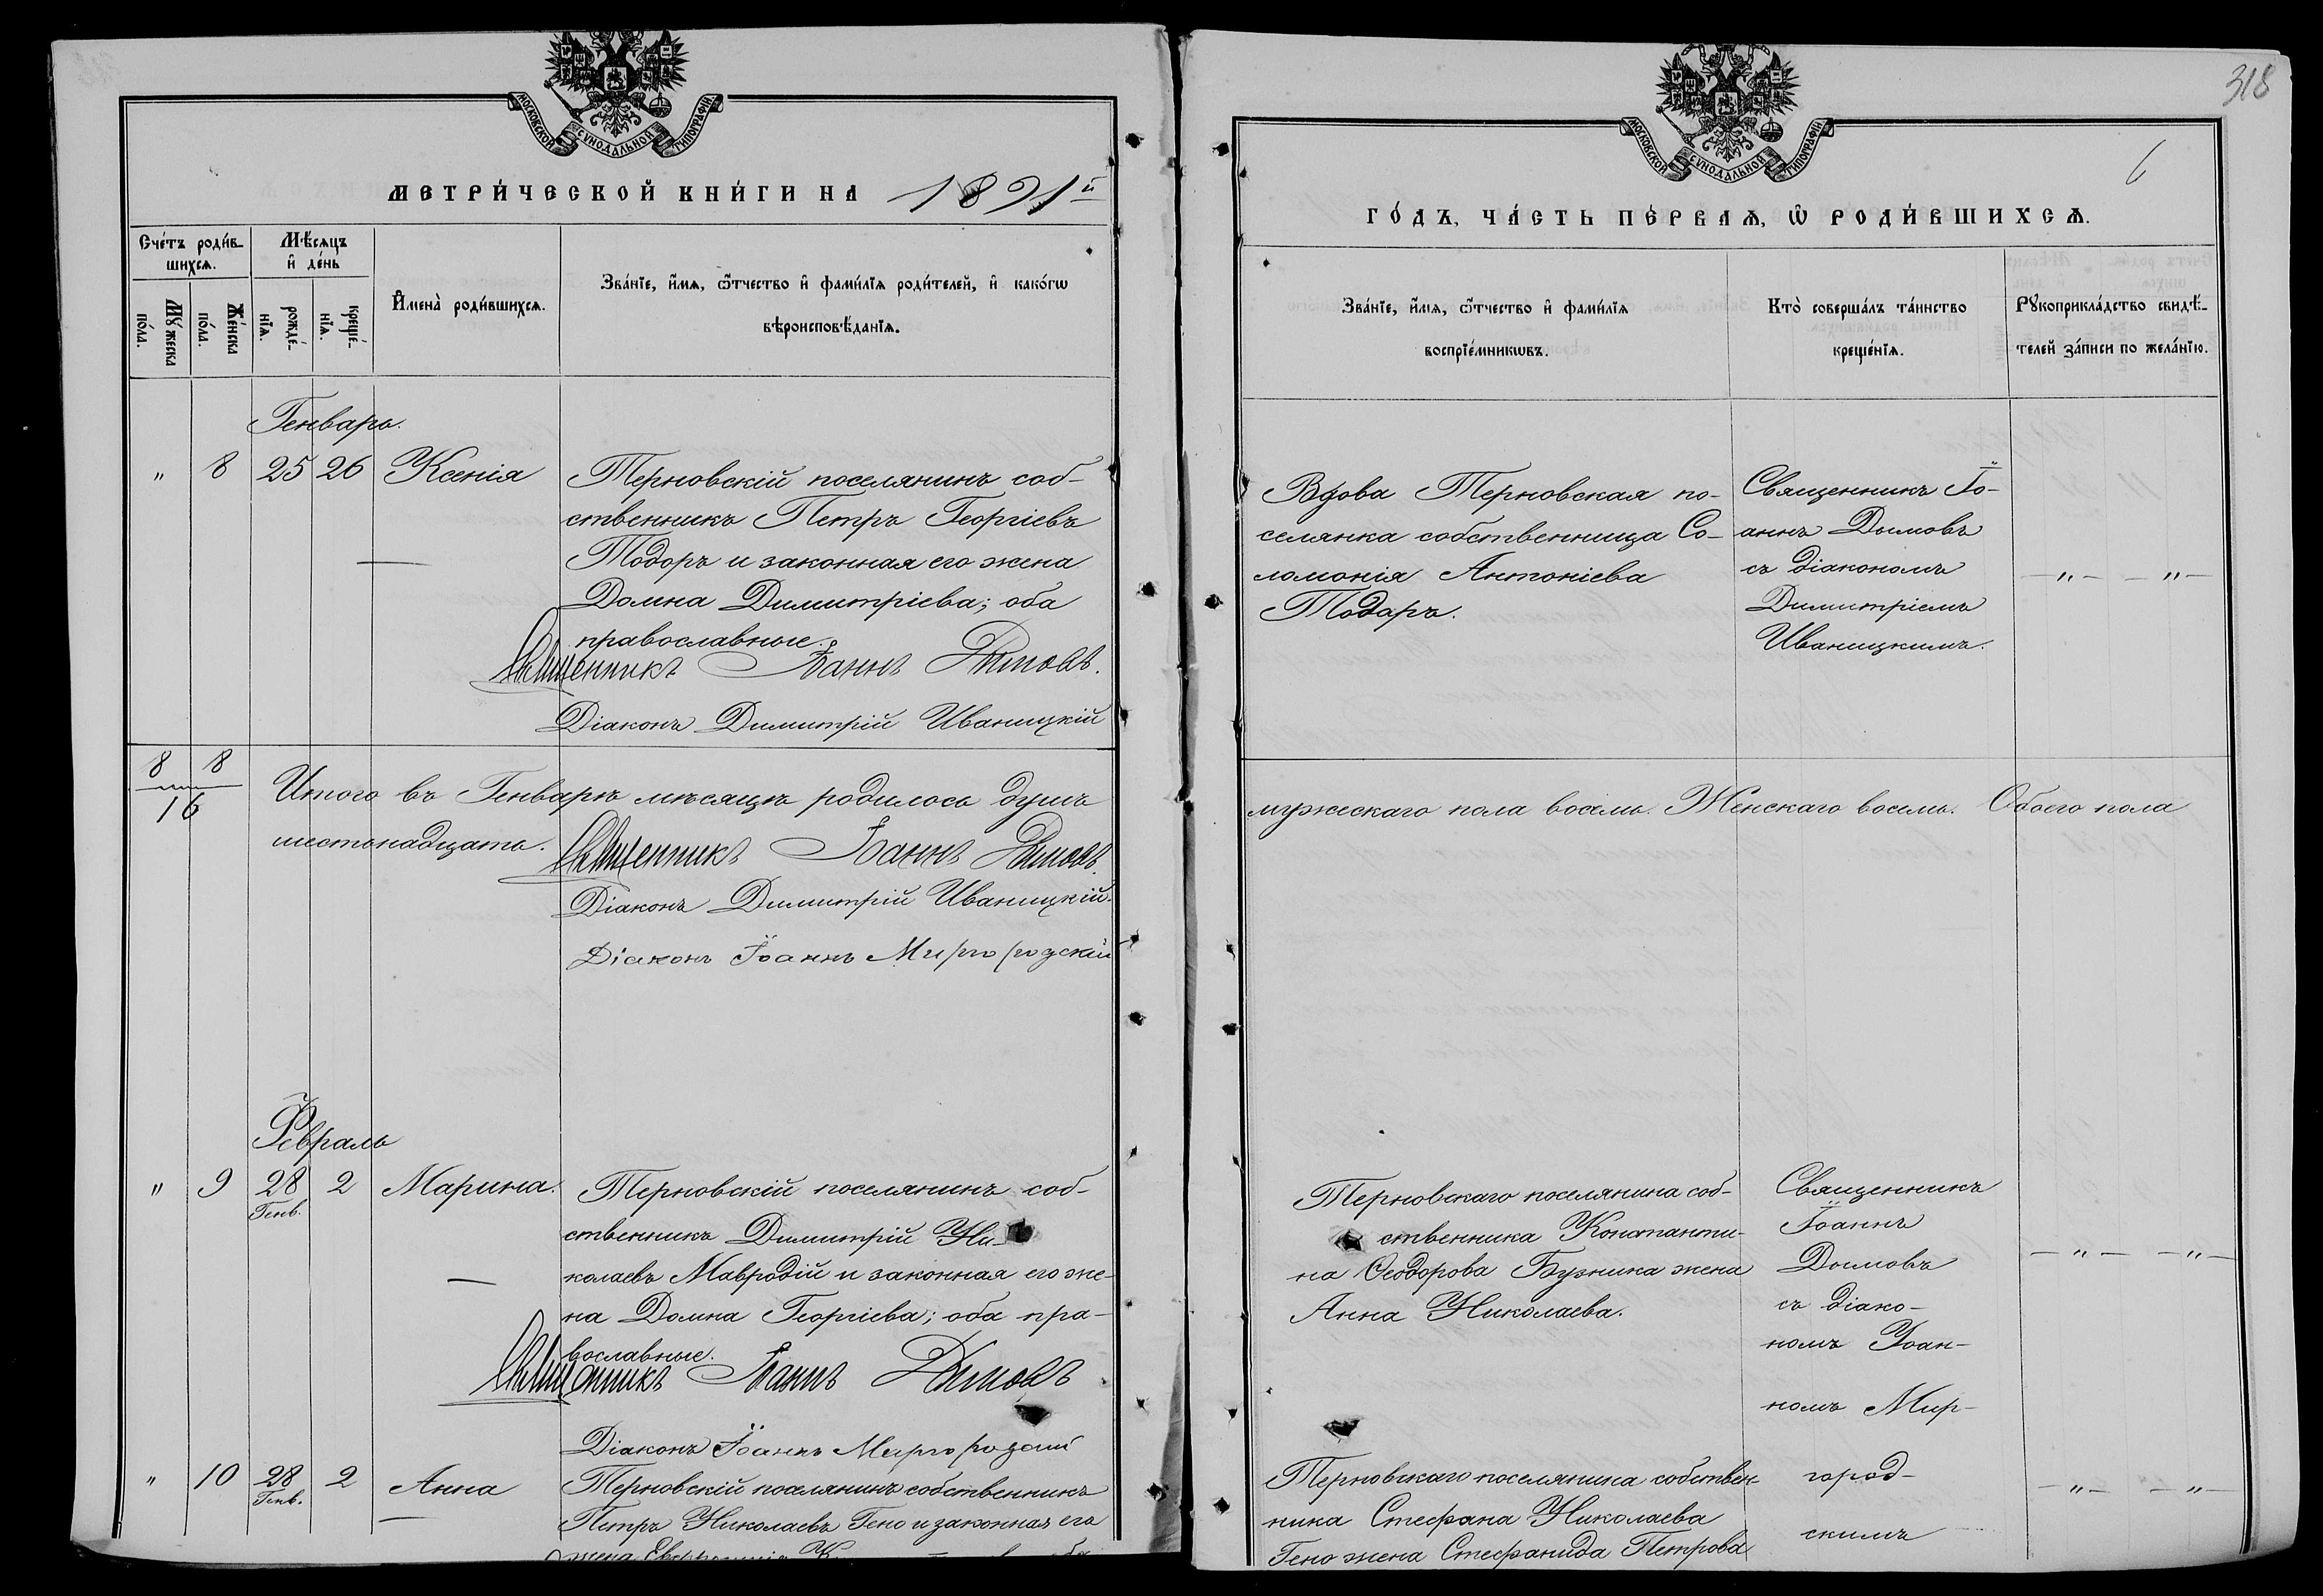 318
6
МОСКОВСКОЙ СѴНОДАЛЬНОЙ ТИПОГРАФІИ
МОСКОВСКОЙ СѴНОДАЛЬНОЙ ТИПОГРАФІИ
МЕТРИ́ЧЕСКОЙ КНИ́ГИ НА 1891й
Сче́тъ роди́в-
шихсѧ.
Мꙋ́жеска
по́ла.
Же́нска
по́ла.
Мѣ́сѧцъ
и҆ де́нь
рожде́-
нїѧ.
креще́-
нїѧ.
И҆мена̀ роди́вшихсѧ.
Зва́нїе, и҆́мѧ, ѻ҆́тчество и҆ фами́лїѧ роди́телей, и҆ како́гѡ
вѣроисповѣ́данїѧ.
Генварь.
" 8 25 26 Ксенія
Терновскій поселянинъ соб-
ственникъ Петръ Георгіевъ
Тодоръ и законная его жена
Домна Димитріева; оба
православные.
Священникъ Іоаннъ Дымовъ.
Діаконъ Димитрій Иваницкій
8 8
16
Итого въ Генварѣ мѣсяцѣ родилось душъ
шестьнадцать.
Священникъ Іоаннъ Дымовъ.
Діаконъ Димитрій Иваницкій.
Діаконъ Іоаннъ Миргородскій
Февраль
" 9 28 2 Марина.
Генв.
Терновскій поселянинъ соб-
ственникъ Димитрій Ни-
колаевъ Мавродій и законная его же-
на Домна Георгіева; оба пра-
вославные.
Священникъ Іоаннъ Дымовъ
Діаконъ Іоаннъ Миргородскій
" 10 28 2 Анна
Генв.
Терновскій поселянинъ собственникъ
Петръ Николаевъ Гено и законная его
жена
ГО́ДЪ, ЧА́СТЬ ПЕ́РВАѦ, Ѡ҆ РОДИ́ВШИХСѦ.
Зва́нїе, и҆́мѧ, ѻ҆́тчество и҆ фами́лїѧ
воспрїе́мникѡвъ.
Кто̀ соверша́лъ та́инство
креще́нїѧ.
Рꙋкоприкла́дство свидѣ́-
телей за́писи по жела́нїю.
Вдова Терновская по-
селянка собственница Со-
ломонія Антоніева
Тодоръ.
Священникъ Іо-
аннъ Дымовъ
съ діакономъ
Димитріемъ
Иваницкимъ.
— " — — " —
мужескаго пола восемь. Женскаго восемь. Обоего пола
Терновскаго поселянина соб-
ственника Константи-
на Ѳеодорова Бузника жена
Анна Николаева.
Священникъ
Іоаннъ
Дымовъ
съ діако-
номъ Іоан-
номъ Мир-
город-
скимъ
— " — — " —
Терновскаго поселянина собствен-
ника Стефана Николаева
Гено жена Стефанида Петрова
— " — — " —